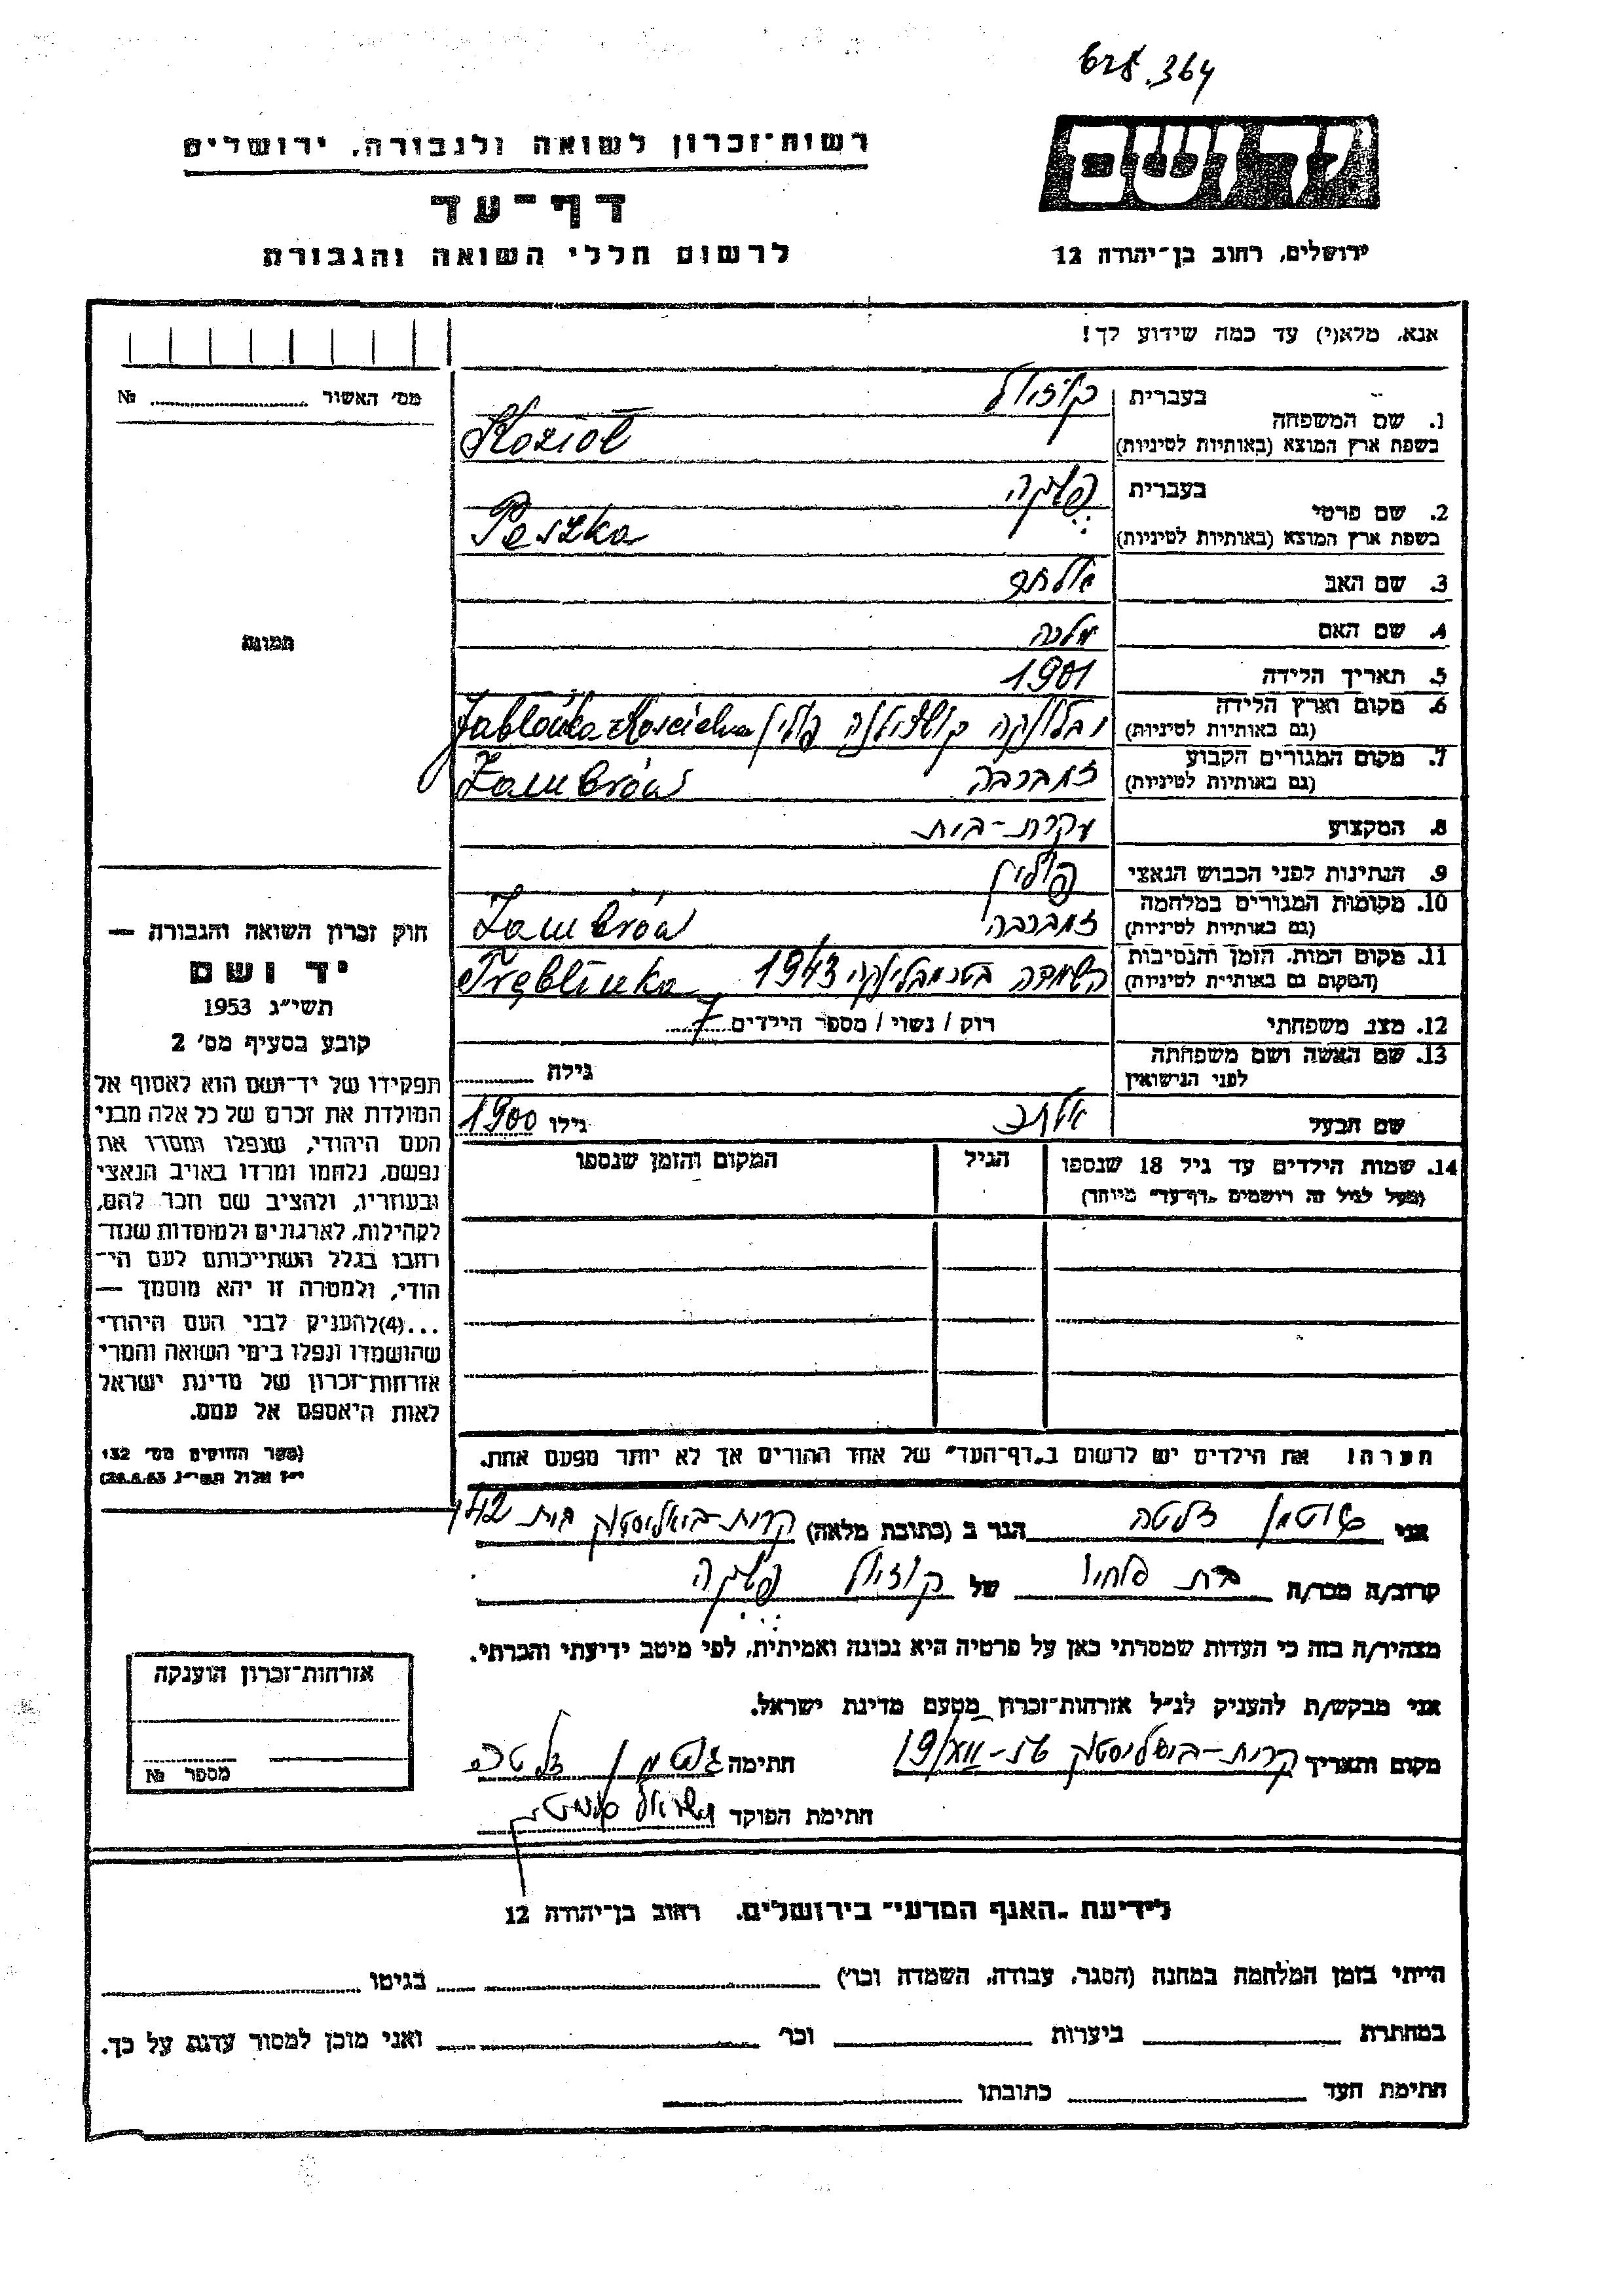 628.364
יד ושם
רשות-זכרון לשואה ולגבורה, ירושלים
דף-עד
לרשום חללי השואה והגבורה
ירושלים, רחוב בן-יהודה 12
אנא, מלא(י) עד כמה שידוע לך!
מס' האשור № 
1. שם המשפחה בעברית קוזיול
בשפת ארץ המוצא (באותיות לטיניות) Kozioł
2. שם פרטי בעברית פשקה
בשפת ארץ המוצא (באותיות לטיניות) Peszka
3. שם האב
4. שם האם מלכה
5. תאריך הלידה 1901
6. מקום וארץ הלידה (גם באותיות לטיניות) פולין Jabłónka Kościelna
7. מקום המגורים הקבוע (גם באותיות לטיניות) זמברבה Zambrów
8. המקצוע עקרת-בית
9. הנתינות לפני הכבוש הנאצי פולין
10. מקומות המגורים במלחמה (גם באותיות לטיניות) זמברבה Zambrów
11. מקום המות, הזמן והנסיבות (המקום גם באותיות לטיניות) השמדה בטרמבלינקה 1943 Tręblinka
12. מצב משפחתי רוק / נשוי / מספר הילדים 7
13. שם האשה ושם משפחתה לפני הנישואין גילה
שם הבעל גילו 1900
14. שמות הילדים עד גיל 18 שנספו
(מעל לגיל זה רושמים "דף-עד" מיוחד)
הגיל
המקום והזמן שנספו
תמונה
חוק זכרון השואה והגבורה —
יד ושם
תשי"ג 1953
קובע בסעיף מס' 2
תפקידו של יד-ושם הוא לאסוף אל
המולדת את זכרם של כל אלה מבני
העם היהודי, שנפלו ומסרו את
נפשם, נלחמו ומרדו באויב הנאצי
ובעוזריו, ולהציב שם וזכר להם,
לקהילות, לארגונים ולמוסדות שנח־
רבו בגלל השתייכותם לעם הי־
הודי, ולמטרה זו יהא מוסמך —
...(4)להעניק לבני העם היהודי
שהושמדו ונפלו בימי השואה והמרי
אזרחות-זכרון של מדינת ישראל
לאות היאספם אל עמם.
(ספר החוקים מס' 132
י"ז אלול תשי"ג 28.8.53)
הערה! את הילדים יש לרשום ב"דף-העד" של אחד ההורים אך לא יותר מפעם אחת.
אני גוטמן זלטה הגר ב (כתובת מלאה) קרית-ביאליסטוק בית
קרוב/ה מכר/ה בת אחיו של קוזיול פשקה
מצהיר/ה בזה כי העדות שמסרתי כאן על פרטיה היא נכונה ואמיתית, לפי מיטב ידיעתי והכרתי.
אני מבקש/ת להעניק לנ"ל אזרחות-זכרון מטעם מדינת ישראל.
מקום ותאריך קרית-ביאליסטוק חתימה גוטמן זלטה
חתימת הפוקד ישראל
אזרחות-זכרון הוענקה
מספר №
לידיעת "האגף המדעי" בירושלים, רחוב בן-יהודה 12
הייתי בזמן המלחמה במחנה (הסגר, עבודה, השמדה וכו') בגיטו
במחתרת ביערות וכו' ואני מוכן למסור עדות על כך.
חתימת העד כתובתו